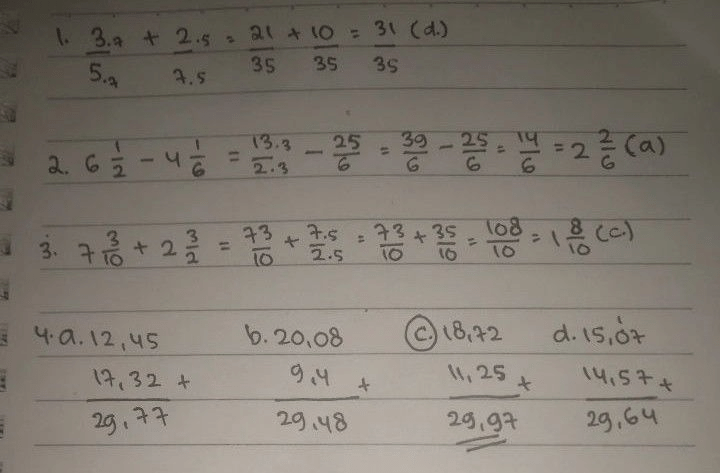 1. 3.7/5.7 + 2.5/7.5 = 21/35 + 10/35 = 31/35 (d.)
2. 6 1/2 - 4 1/6 = 13.3/2.3 - 25/6 = 39/6 - 25/6 = 14/6 = 2 2/6 (a)
3. 7 3/10 + 2 3/2 = 73/10 + 7.5/2.5 = 73/10 + 35/10 = 108/10 = 1 8/10 (c.)
4. a. 12,45 b. 20,08 c. 18,72 d. 15,07
17,32 + 9,4 + 11,25 + 14,57 +
29,77 29,48 29,97 29,64